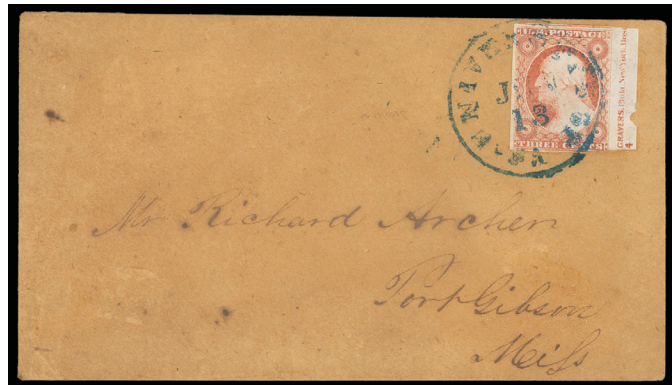 U.S. POSTAGE
THREE CENTS
GRAVERS, Phila. New York, Bos
4
13
Mr Richard Archer
Port Gibson
Miss